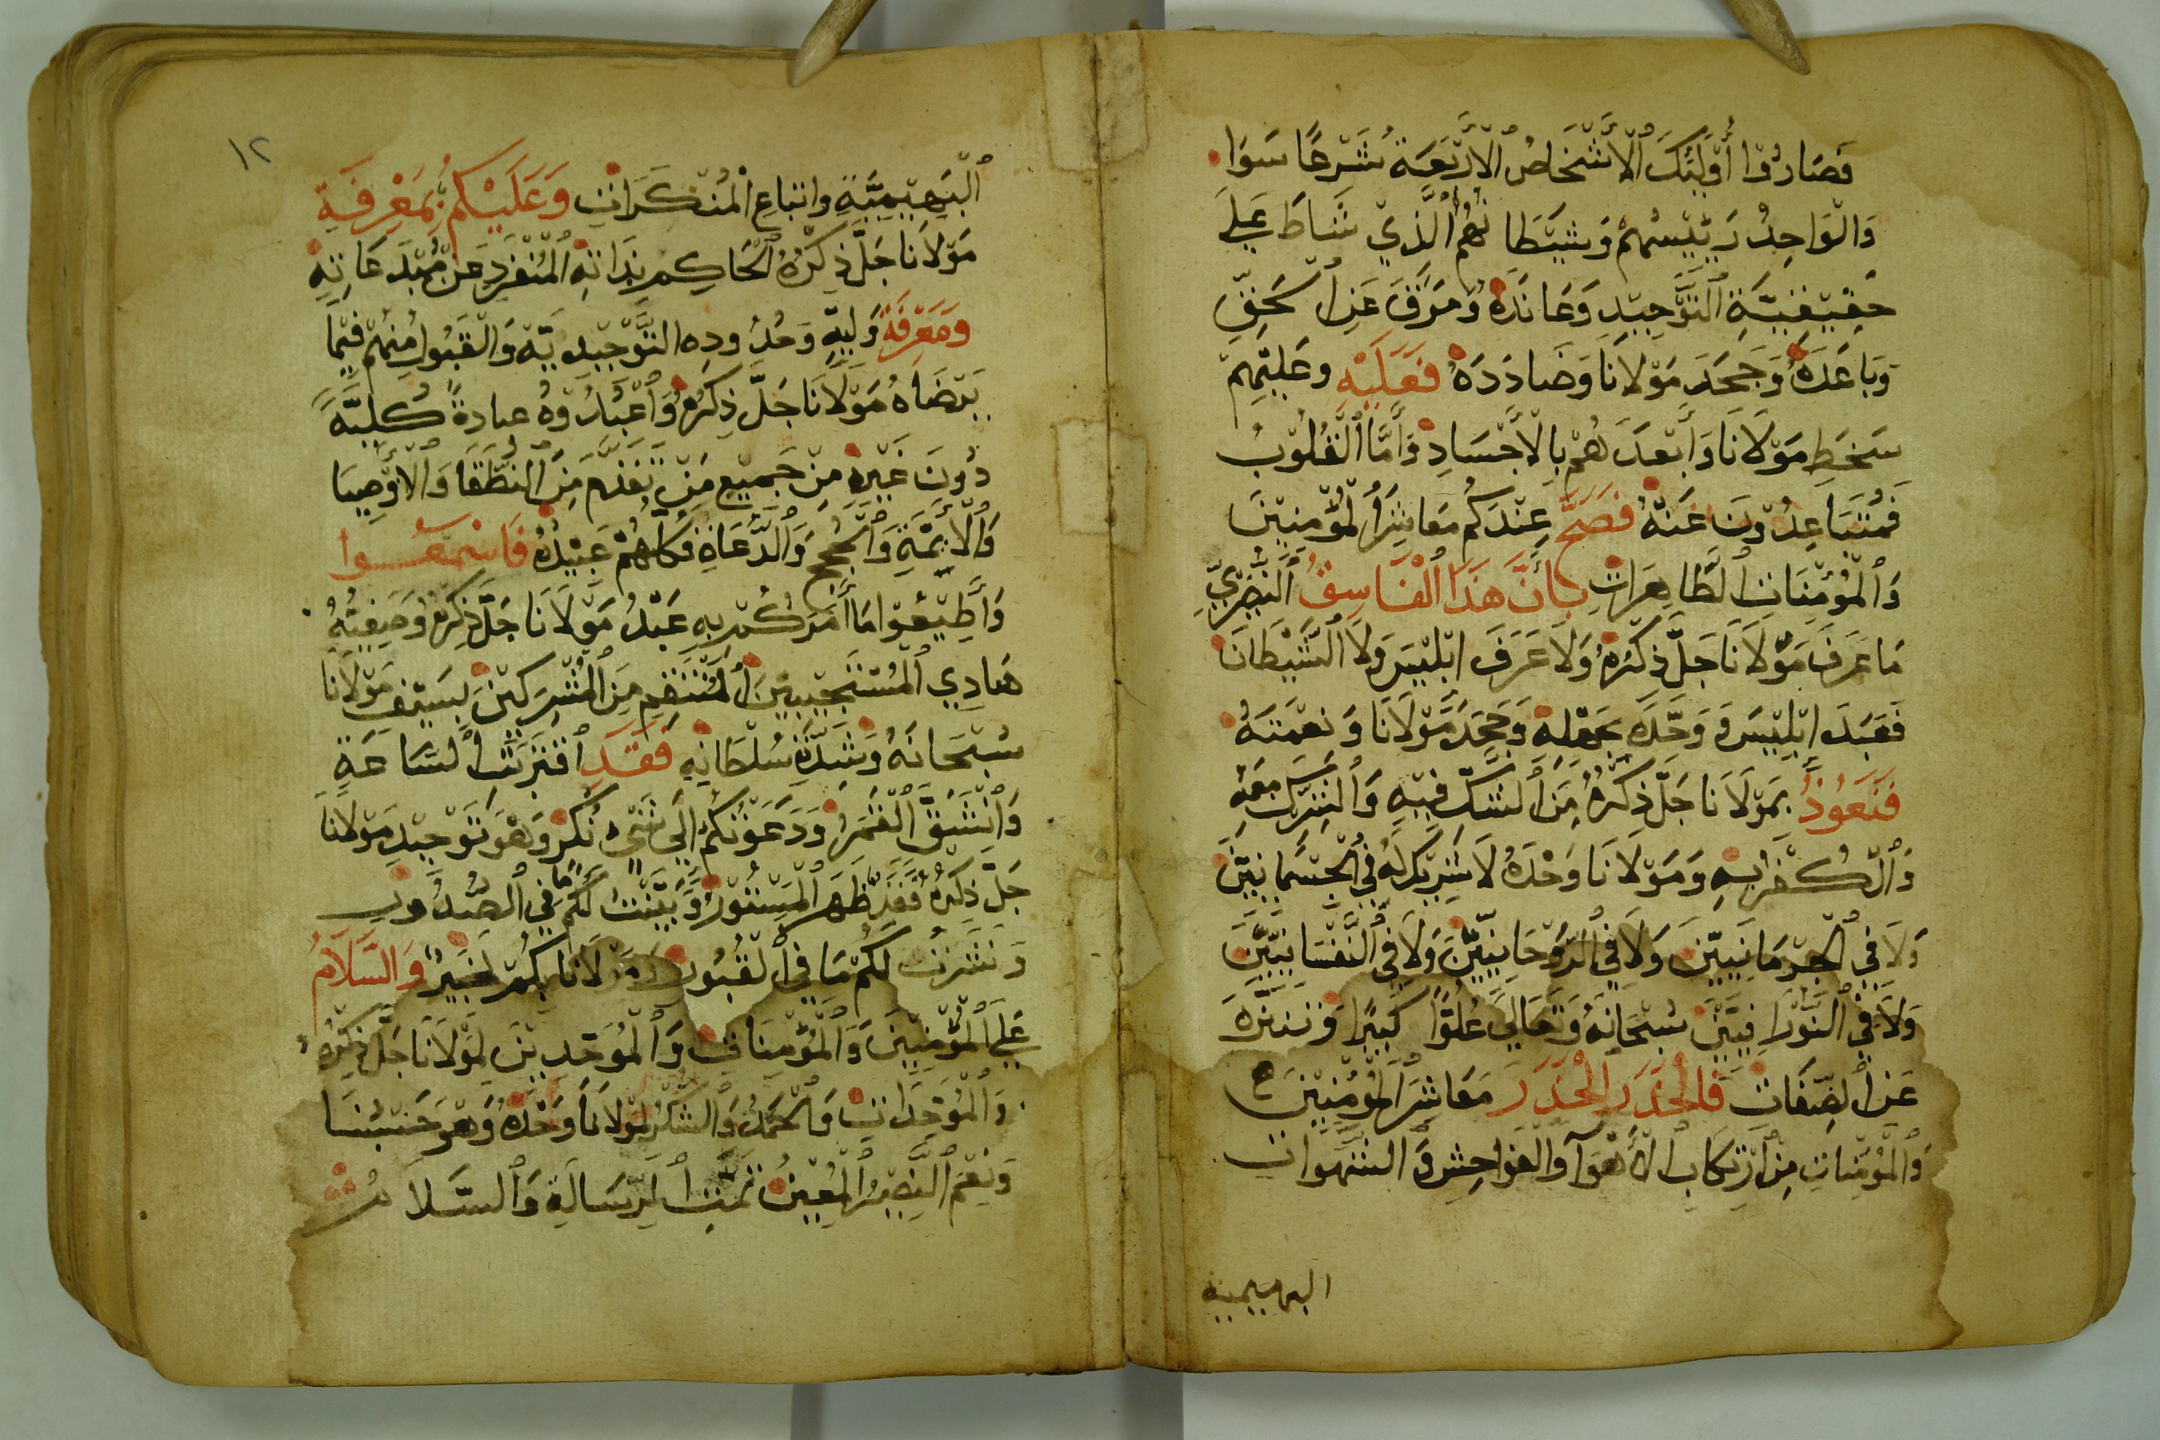 فَصَارُوْا أُوْلَئِكَ الْأَشْخَاصُ الْارْبَعَة شَرْعًا سَوَا
وَالْوَاحِدُ رَئِيْسُهُمْ وَشَيْطَانُهُمُ الَّذِيْ شَاطَ عَلَى
حَقِيْقِيَّةِ التَّوْحِيْدِ وَعَانَدَهُ وَمَرَقَ عَنِ الْحَقِّ
وَبَاعَدَهُ وَجَحَدَ مَوْلَانَا وَضَادَدَهُ فَعَلَيْهِ وَعَلَيْهِمْ
سَخَطِ مَوْلَانَا وَابْعَدَهُمْ بِالْأَجْسَادِ وَأَمَّا الْقُلُوْبُ
فَمُتَبَاعِدُوْنَ عَنْهُ فَصَحَّ عِنْدَكُمْ مَعَاشِرَ الْمُؤْمِنِيْنَ
وَالْمُؤْمِنَاتِ الطَّاهِرَاتِ بِأَنَّ هَذَا الْفَاسِقُ النُّصَيْرِيِّ
مَا عَرَفَ مَوْلَانَا جَلَّ ذِكْرُهُ وَلَا عَرَفَ ابْلِيْسَ وَلَا الشَّيْطَانَ
فَعَبَدَ ابْلِيْسَ وَوَحَّدَهُ بِجَهْلِهِ وَجَحَدَ مَوْلَانَا وَنِعْمَتَهُ
فَنَعُوْذُ بِمَوْلَانَا جَلَّ ذِكْرُهُ مِنَ الشَّكِّ فِيْهِ وَالشِّرْكِ مَعَهُ
وَالْكُفْرِ بِهِ وَمَوْلَانَا وَحْدَهُ لَا شَرِيْكَ لَهُ فِي الْجِسْمَانِيِّيْنَ
وَلَا فِي الْجِرْمَانِيِّيْنَ وَلَا فِي الرَّوْحَانِيِّيْنَ وَلَا فِي النَّفْسَانِيِّيْنَ
وَلَا فِي النَّوْرَانِيِّيْنَ سُبْحَانَهُ وَتَعَالَى عُلُوًّا كَبِيْرًا وَتَنَزَّهَ
عَنِ الصِّفَاتِ فَالْحَذَرَ الْحَذَرَ مَعَاشِرَ الْمُؤْمِنِيْنَ
وَالْمُؤْمِنَاتِ مِنْ ارْتِكَابِ الْأَهْوَآ وَالْفَوَاحِشِ وَالشَّهَوَاتِ
البهيمية
١٢
الْبَهِيْمِيَّةِ وَاتبَاعِ الْمُنْكَرَاتِ وَعَلَيْكُمْ بِمَعْرِفَةِ
مَوْلَانَا جَلَّ ذِكْرُهُ الْحَاكِمِ بِذَاتِهِ الْمُنْفَرِدِ عَنْ مُبْدَعَاتِهِ
وَمَعْرِفَةِ وَلِيِّهِ وَحُدُودِهِ التَّوْحِيْدِيَّةِ وَالْقَبُولِ مِنْهُمْ فِيْمَا
يَرْضَاهُ مَوْلَانَا جَلَّ ذِكْرُهُ وَاعْبُدُوْهُ عِبَادَةً كُلِيَّةً
دُوْنَ غَيْرِهِ مِنْ جَمِيْعِ مَنْ تَقَدَّمَ مِنَ النُّطَقَا وَالْاوْصِيَا
وَالْائِمَّةِ وَالْحُجَجِ وَالدُّعَاةِ فَكُلُّهُمْ عَبِيْدُهُ فَاسْمَعُوا
وَأَطِيْعُوْا مَا أَمَرَكُمْ بِهِ عَبْدُ مَوْلَانَا جَلَّ ذِكْرُهُ وَصَفِيُّهُ
هَادِي الْمُسْتَجِيْبِيْنَ الْمُنْتَقِمِ مِنَ الْمُشْرِكِيْنَ بِسَيْفِ مَوْلَانَا
سُبْحَانَهُ وَشِدَّةِ سُلْطَانِهِ فَقَدِ اقْتَرَبَتْ السَّاعَة
وَانْشَقَّ الْقَمَرُ وَدَعَوْتُكُمْ إِلَى شَيْء نُكُرْ وَهْوَ تَوْحِيْدِ مَوْلَانَا
جَلَّ ذِكْرُهُ فَقَدْ ظَهَرَ الْمَسْتُوْرْ وَبَيَّنْتُ لَكُمْ مَا فِي الصُّدُورْ
وَنَشَرْتُ لَكُمْ مَا فِي الْقُبُور وَمَوْلَانَا بِكُمْ لَخَبِيْرٌ وَالسَّلَامُ
عَلَى الْمُؤْمِنِيْنَ وَالْمُؤْمِنَاتِ وَالْمُوَحِّدِيْنَ لِمَوْلَانَا جَلَّ ذِكْرُهُ
وَالْمُوَحِّدَاتِ وَالْحَمْدُ وَالشُّكْرُ لِمَوْلَانَا وَحْدَهُ وَهْوَ حَسْبُنَا
وَنِعْمَ النَّصِيْرُ الْمُعِيْنُ تَمَّتِ الرِّسَالَةِ وَالسَّلَامُ